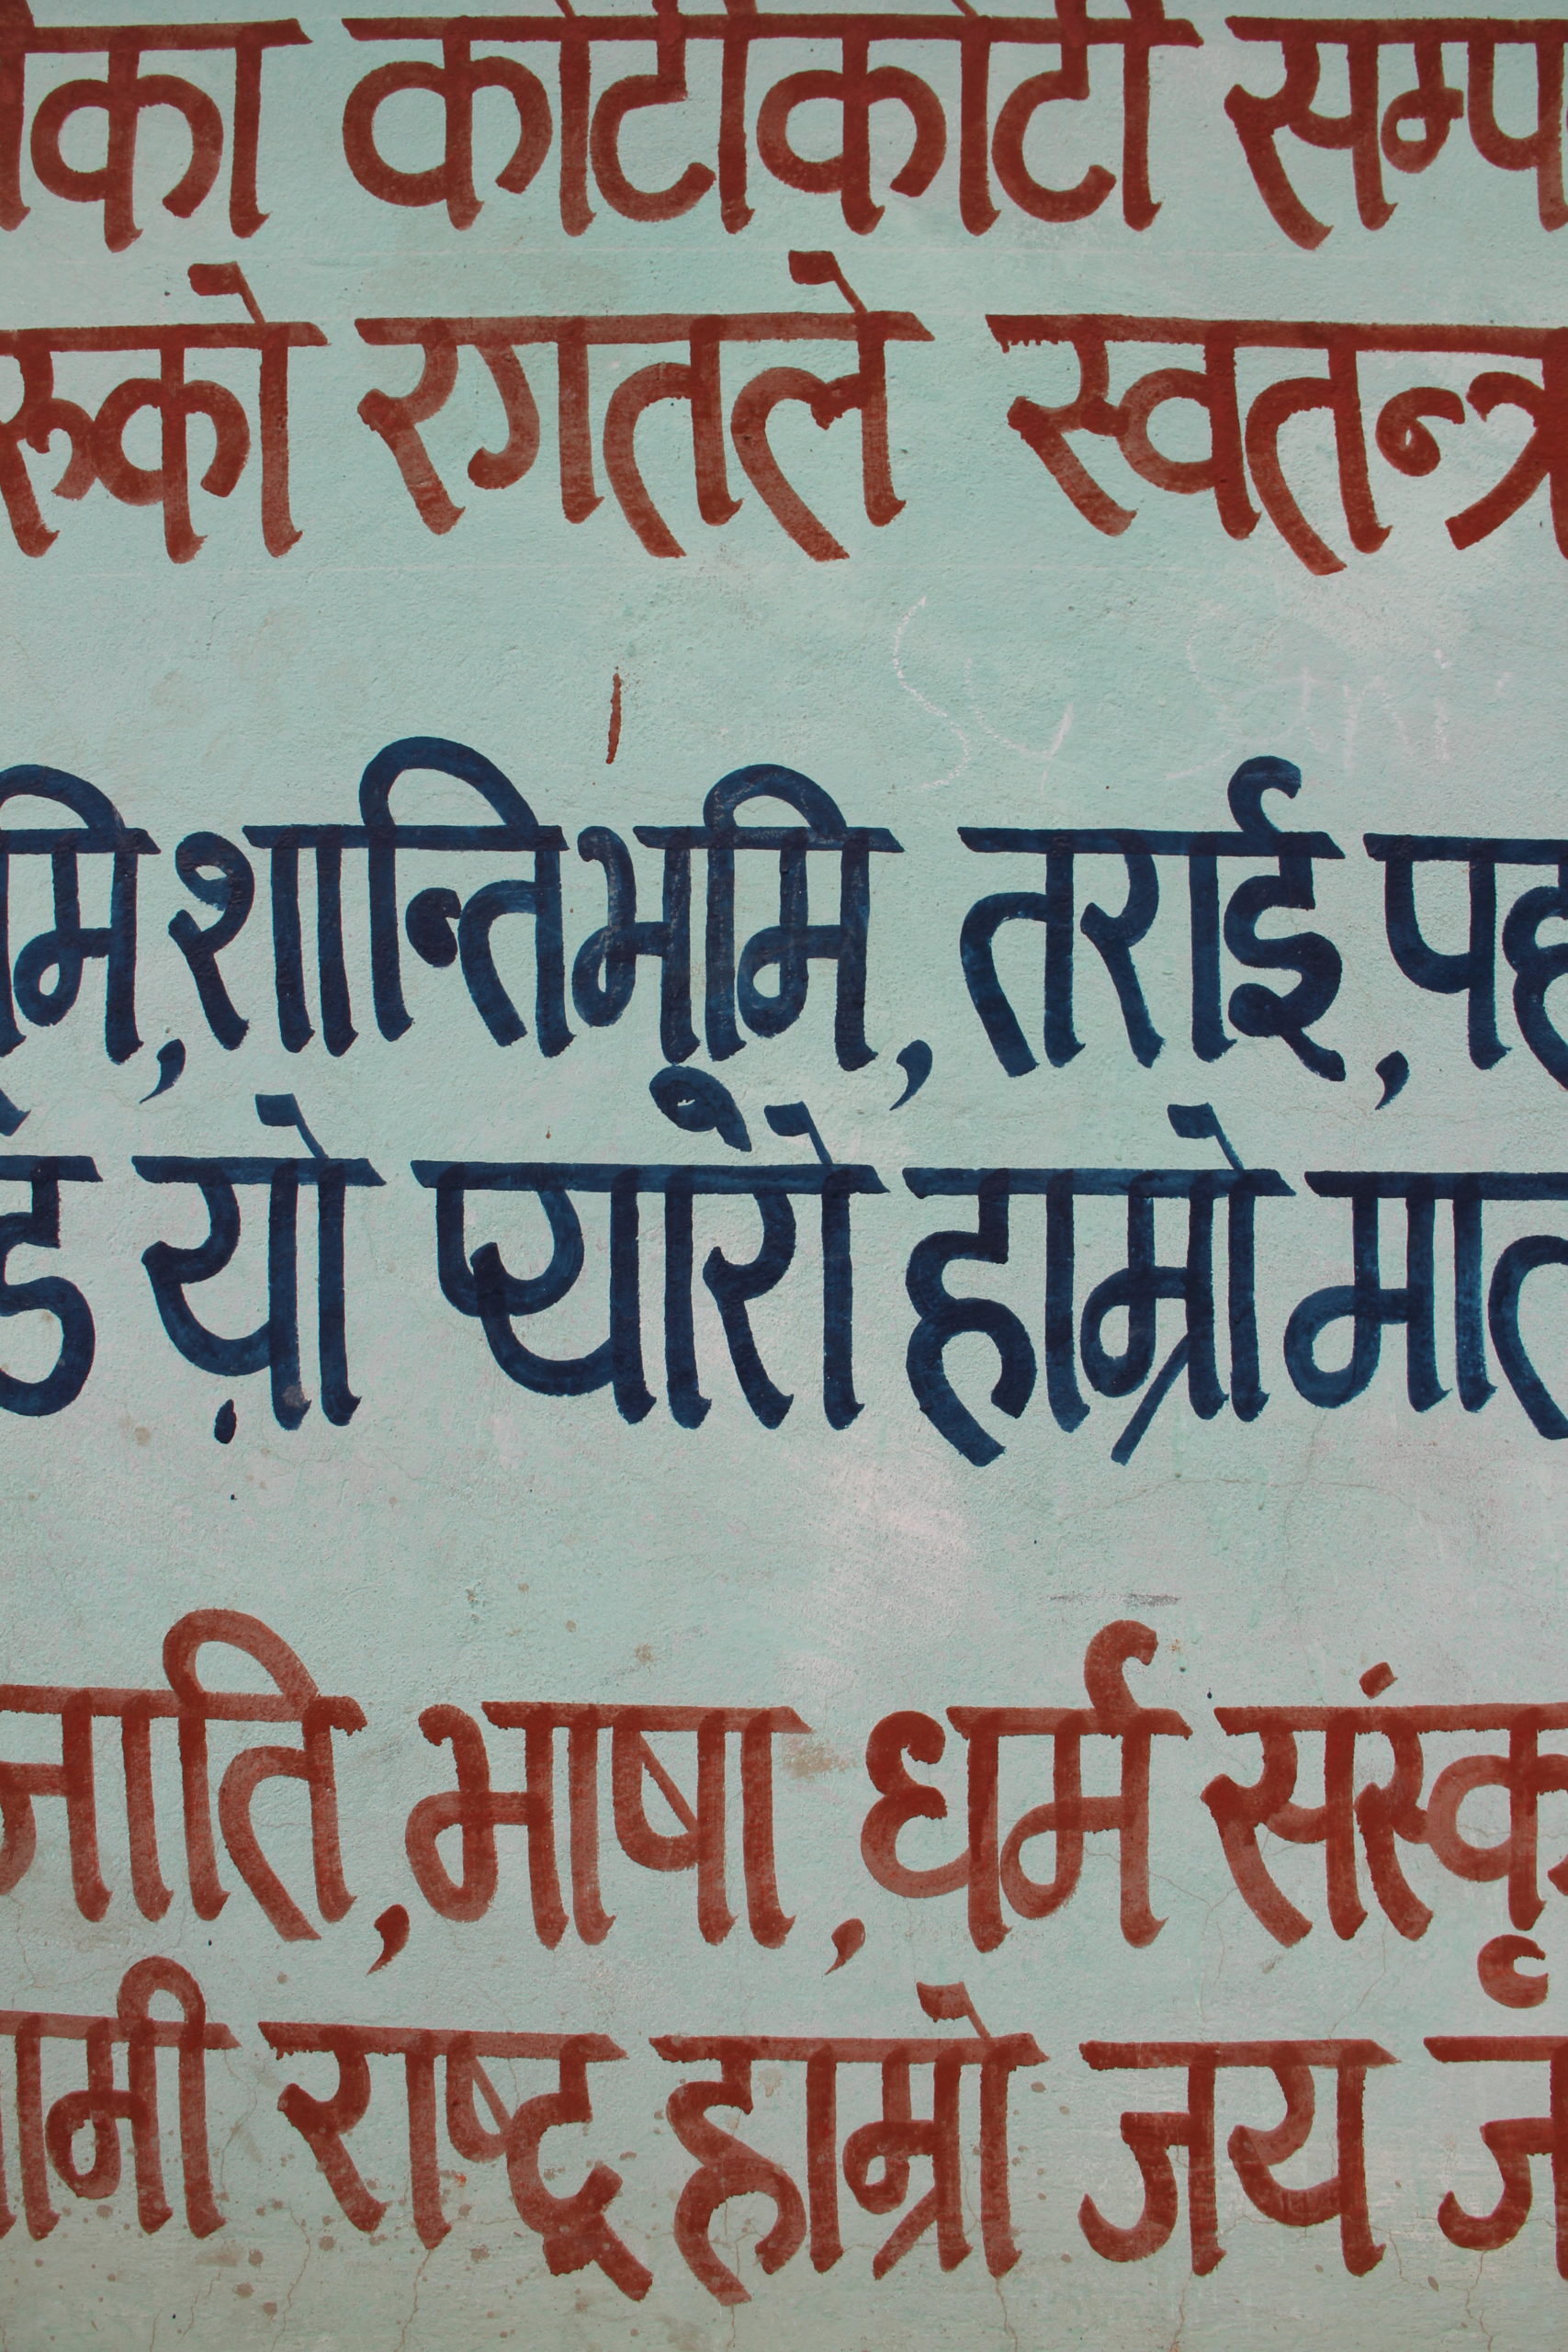 का कोटीकोटी सम्प
रुको रगतले स्वतन्त्र
मि, शान्तिभूमि, तराई, पह
ड य़ो प्यारो हाम्रो मात
जाति, भाषा, धर्म संस्कृ
ामी राष्ट्र हाम्रो जय ज